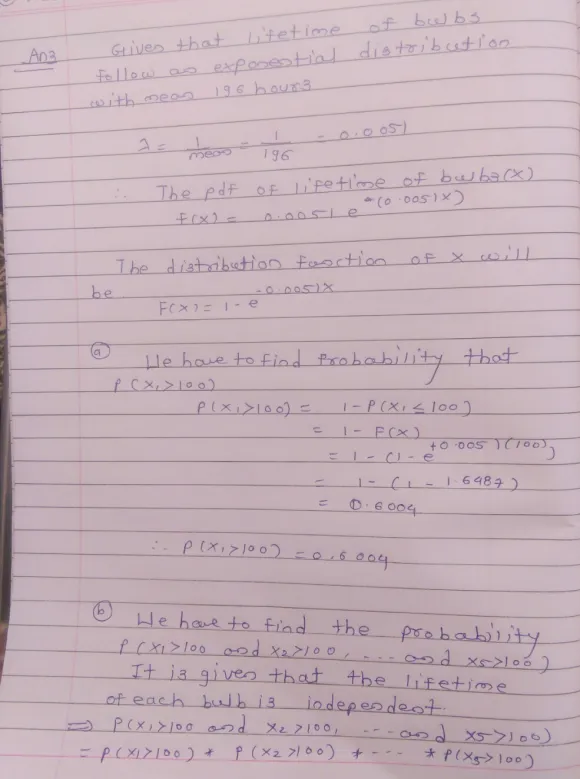 Ans3 Given that lifetime of bulbs
follow an exponential distribution
with mean 196 hours
λ = 1/mean = 1/196 = 0.0051
∴ The pdf of lifetime of bulbs(x)
f(x) = 0.0051 e^-(0.0051x)
The distribution function of x will
be
F(x) = 1 - e^-0.0051x
(a) We have to find Probability that
P(X1>100)
P(X1>100) = 1 - P(X1 ≤ 100)
= 1 - F(x)
= 1 - (1 - e^+0.0051(100))
= 1 - (1 - 1.6487)
= 0.6004
∴ P(X1>100) = 0.6004
(b) We have to find the probability
P(X1>100 and X2>100, ... and X5>100)
It is given that the lifetime
of each bulb is independent.
⇒ P(X1>100 and X2>100, ... and X5>100)
= P(X1>100) * P(X2>100) * ... * P(X5>100)